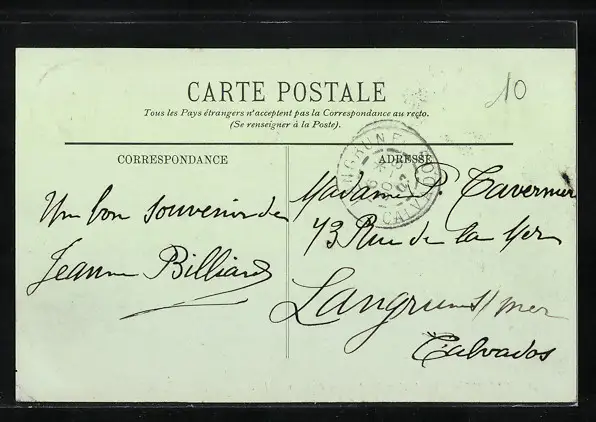 10
CARTE POSTALE
Tous les Pays étrangers n'acceptent pas la Correspondance au recto.
(Se renseigner à la Poste).
CORRESPONDANCE
ADRESSE
Un bon souvenir de
Jeanne Billiard
Madame P Tavernier
73 Rue de la Mer
Langrune s/ mer
Calvados
CALVADOS